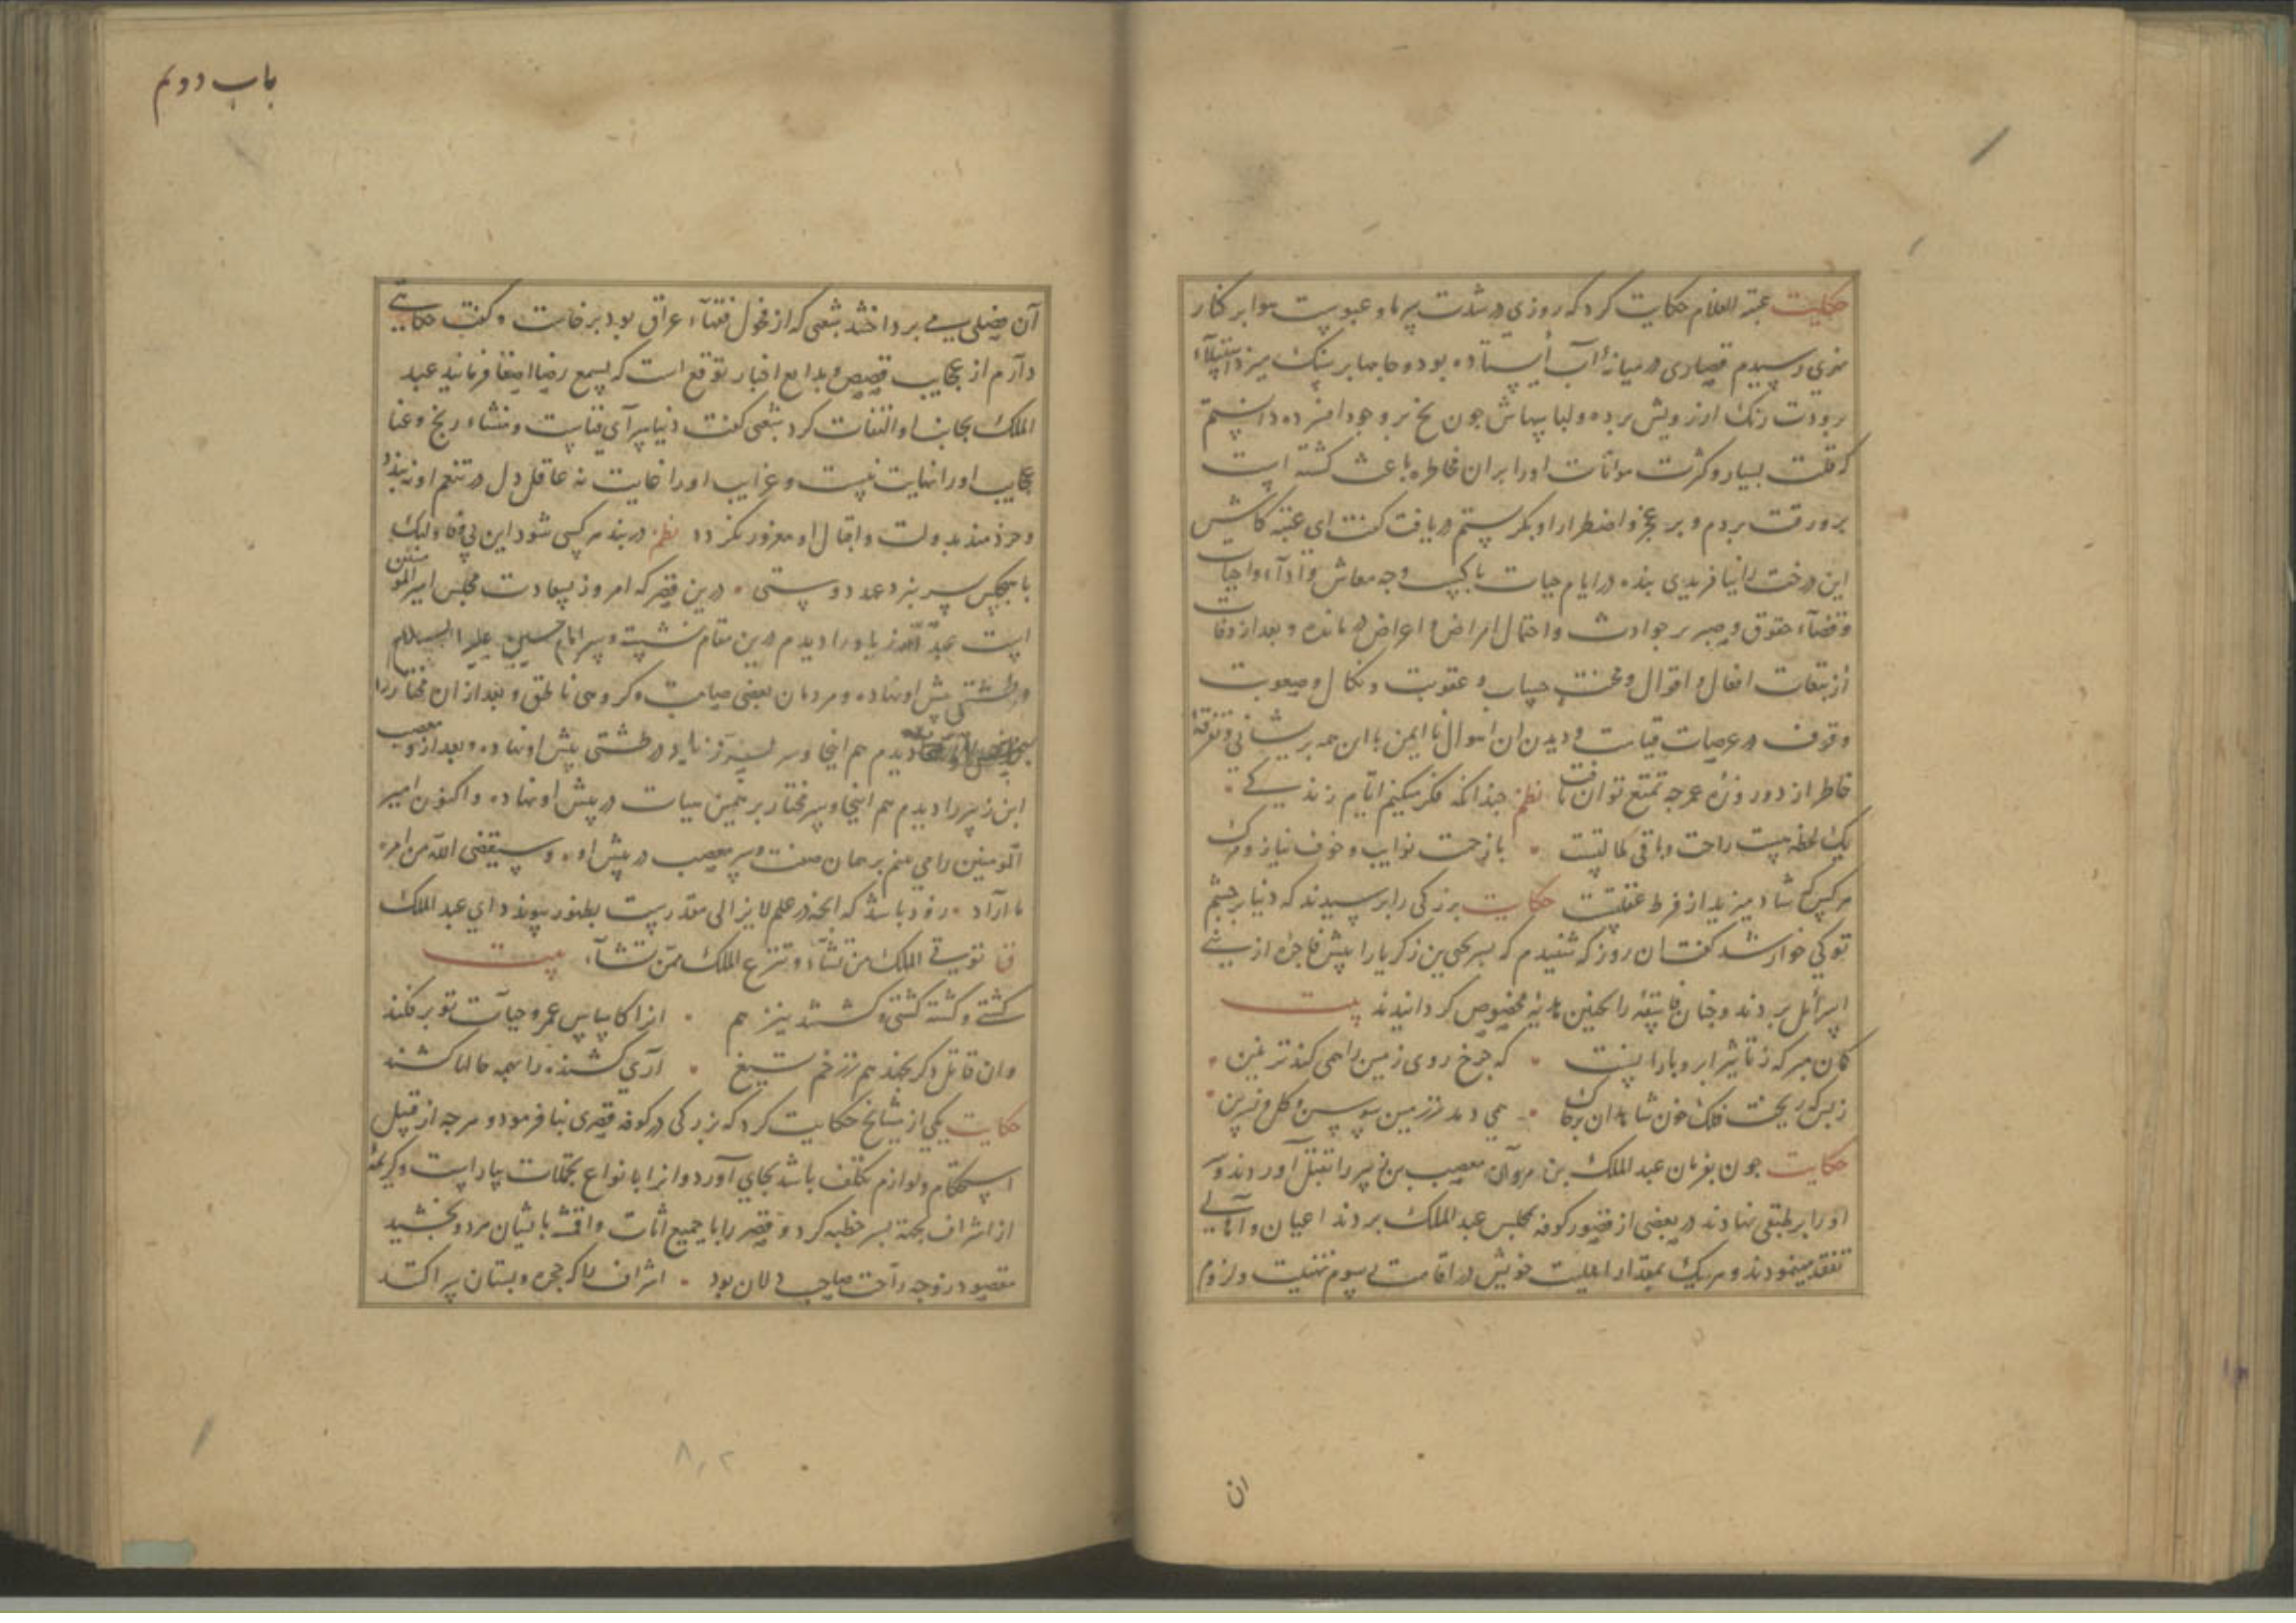 حکایت عتبة الغلام حکایت کرد که روزی در شدت سرما و عبوست هوا بر کنار
نهری رسیدم قصاری در میانهٔ آب ایستاده بود و جامها بر سنک میزد استیلاء
برودت رنک از رویش برده و لباسهاش جون یخ بر وجود افسرده دانستم
که قلت یسار و کثرت مؤنات او را بران مخاطره باعث کشته است
برو رقت بردم و بر عجز و اضطرار او بکریستم دریافت کفت ای عتبه کاش
این درخت را نیافریدی بنده در ایام حیات با کسب وجه معاش و اداء واجبات
و قضاء حقوق و صبر بر حوادث و احتمال امراض و اعراض درمانده و بعد از وفات
از تبعات افعال و اقوال و محنت حساب و عقوبت و نکال و صعوبت
وقوف در عرصات قیامت و دیدن ان اهوال ناایمن با ان همه پریشانی و تفرقهٔ
خاطر از دو روزه عمر جه تمتع توان یافت نظم جندانکه فکر میکنیم ایام زندیکے
یک لحظه نیست راحت و باقی کمالتیست بازحمت نوایب و خوف نیاز و مرک
هر کس که شاد میزید از فرط غفلتست حکایت بزرکی را پرسیدند که دنیا بر جشم
تو کی خوار شد کفت ان روز که شنیدم که سر یحیی بن زکریا را پیش فاجرهٔ از بنی
اسرائل بردند و جنان فاسقهٔ را بجنین هدیهٔ مخصوص کردانیدند بیت
کمان مبر که ز تاثیر ابر و بارانست که جرخ روی زمین را همی کند تزیین
ز بس که ریخت فلک خون شاهدان بر خاک همی دمد ز زمین سوسن و کل و نسرین
حکایت جون بفرمان عبد الملک بن مروان مصعب بن زبیر را بقتل آوردند و سر
او را بر طبقی نهادند در بعضی از قصور کوفه بمجلس عبد الملک بردند اعیان و اهالی
تفقد مینمودند و هر یک بمقدار اهلیت خویش در اقامت رسوم تهنیت و لزوم
ان
باب دوم
آن فصلی می پرداختند شعبی که از فحول فقهاء عراق بود برخاست و کفت حکایتی
دارم از عجایب قصص و بدایع اخبار توقع است که بسمع رضا اصغا فرمایند عبد
الملک بجانب او التفات کرد شعبی کفت دنیا سرآی فناست و منشاء رنج و عنا
عجایب او را نهایت نیست و غرایب او را غایت نه عاقل دل در تنعم او نه بندد
و خردمند بدولت و اقبال او مغرور نکردد نظم در بند هر کسی شود این بی وفا ولیک
با هیچکس بسر نبرد عهد دوستی درین قصر که امروز بسعادت مجلس امیر المؤمنین
است عبد الله زیاد را دیدم درین مقام نشسته و سر امام حسین علیه السلام
در طشتی پیش او نهاده و مردمان بعضی صامت و کروهی ناطق و بعد از ان مختار را
دیدم هم اینجا و سر پسر زیاد در طشتی پیش او نهاده و بعد ازو مصعب
ابن زبیر را دیدم هم اینجا و سر مختار بر همین هیات در پیش او نهاده و اکنون امیر
المومنین را می بینم بر همان صفت و سر مصعب در پیش او و سیقضی الله من امره
ما اراد زود باشد که انجه در علم لایزالی مقدرست بظهور پیوندد ای عبد الملک
تؤتی الملک من تشآء و تنزع الملک ممن تشآء بیت
کشتی و کشته کشتی و کشتند نیز هم ازا کاساس عمر و حیات تو برفکند
وان قاتل دکر بجشد هم ز زخم تیغ آری کشنده را بهمه حالها کشند
حکایت یکی از مشایخ حکایت کرد که بزرکی در کوفه قصری بنا فرمود و هر جه از قبیل
استحکام و لوازم تکلف باشد بجای آورد و انرا بانواع تجملات بیاراست و کریمهٔ
از اشراف بجهة پسر خطبه کرد و قصر را با جمیع اثاث و اقمشه بایشان سپرد و بخشید
مقصود زوجه راحت صاحب دلان بود اشراف را که حجره و بستان سرا کنند
۸۰۲